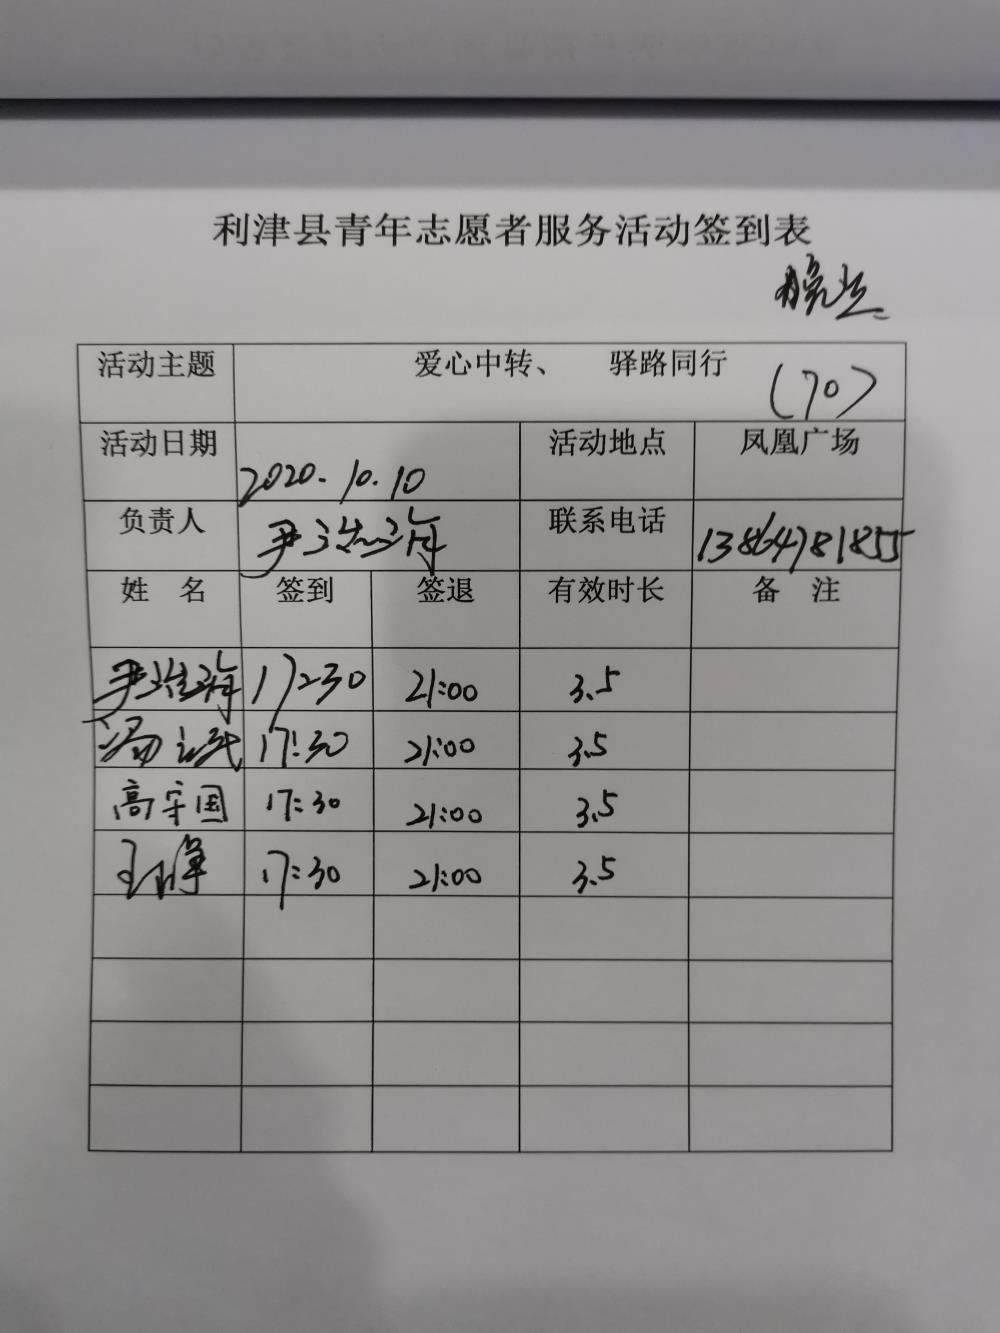 利津县青年志愿者服务活动签到表
晚班
活动主题 爱心中转、 驿路同行 (70)
活动日期 2020.10.10 活动地点 凤凰广场
负责人 尹 联系电话 13864781855
姓 名 签到 签退 有效时长 备 注
尹 17:30 21:00 3.5
17:30 21:00 3.5
高守国 17:30 21:00 3.5
王 17:30 21:00 3.5